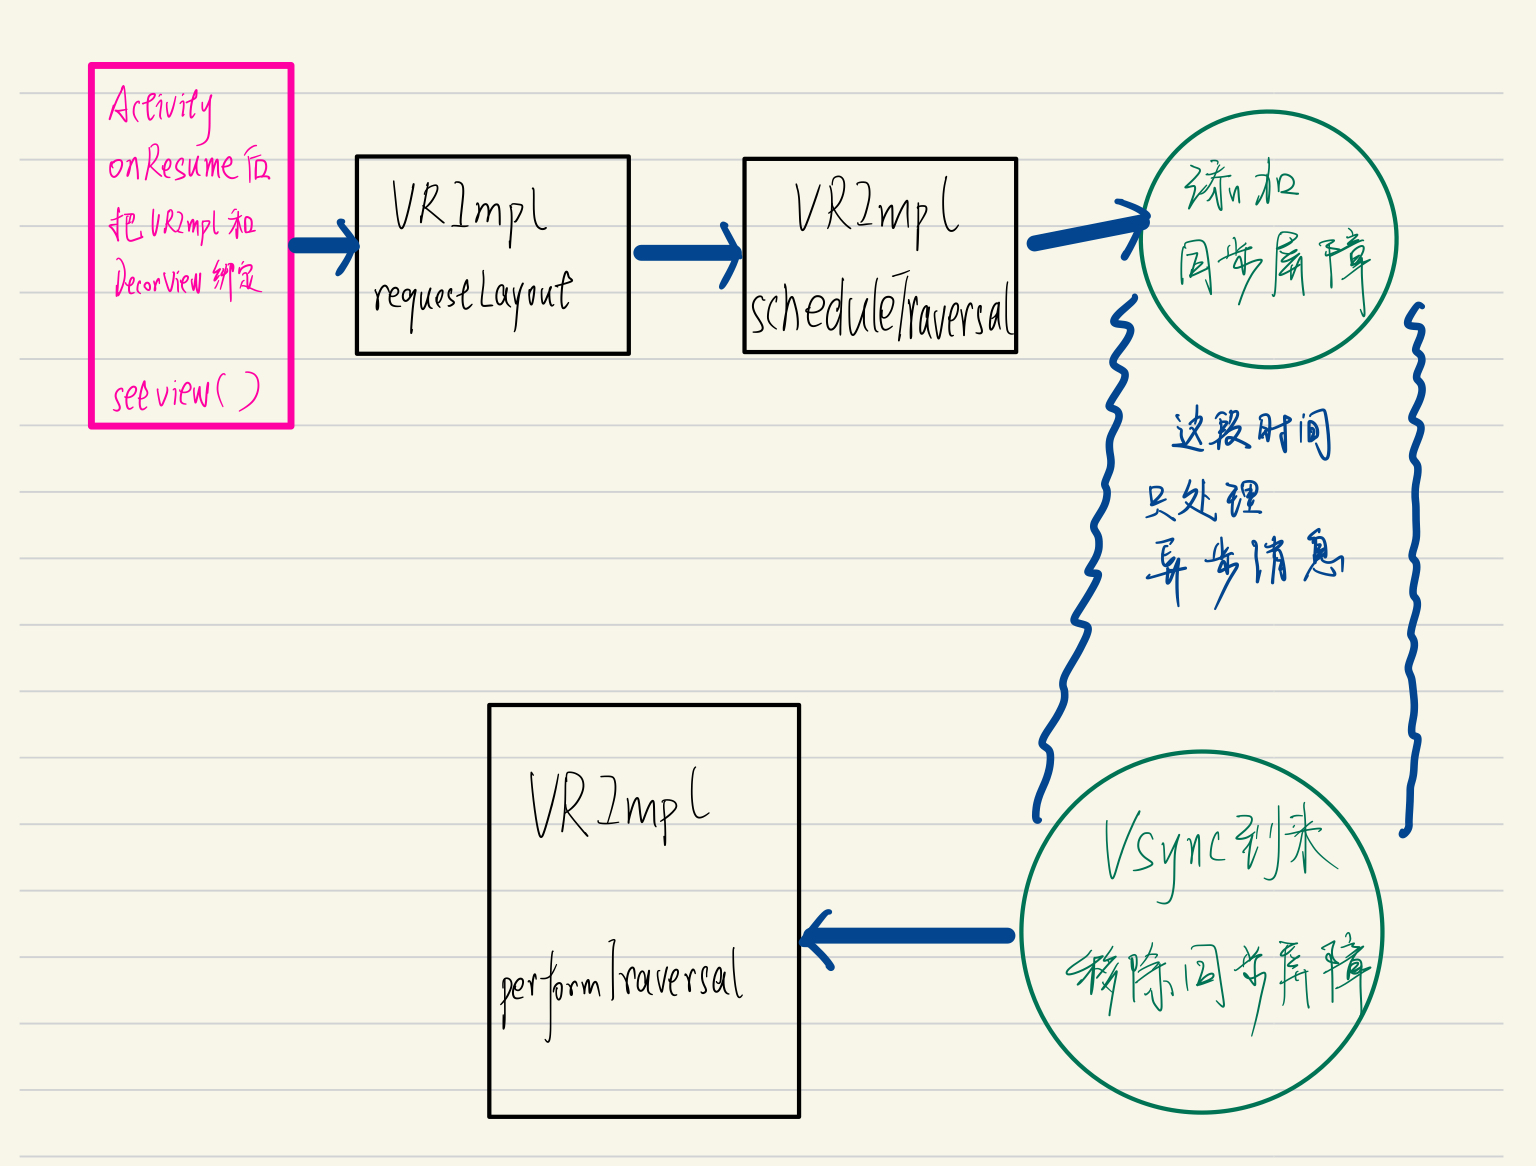 Activity
onResume后
把VRImpl和
DecorView绑定
seeview()
VRImpl
requestLayout
VRImpl
scheduleTraversal
添加
同步屏障
这段时间
只处理
异步消息
Vsync到来
移除同步屏障
VRImpl
performTraversal